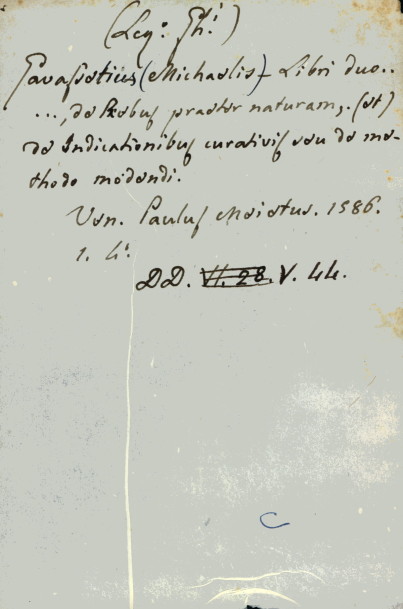 (Leg.º Gh.i)
Gavassetius (Michaelis) - Libri duo..
..., de Rebus praeter naturam, (et)
de Indicationibus curativis seu de me-
thodo medendi.
Ven. Paulus Meietus. 1586.
1. 4.º
DD. VI. 28. V. 44.
C